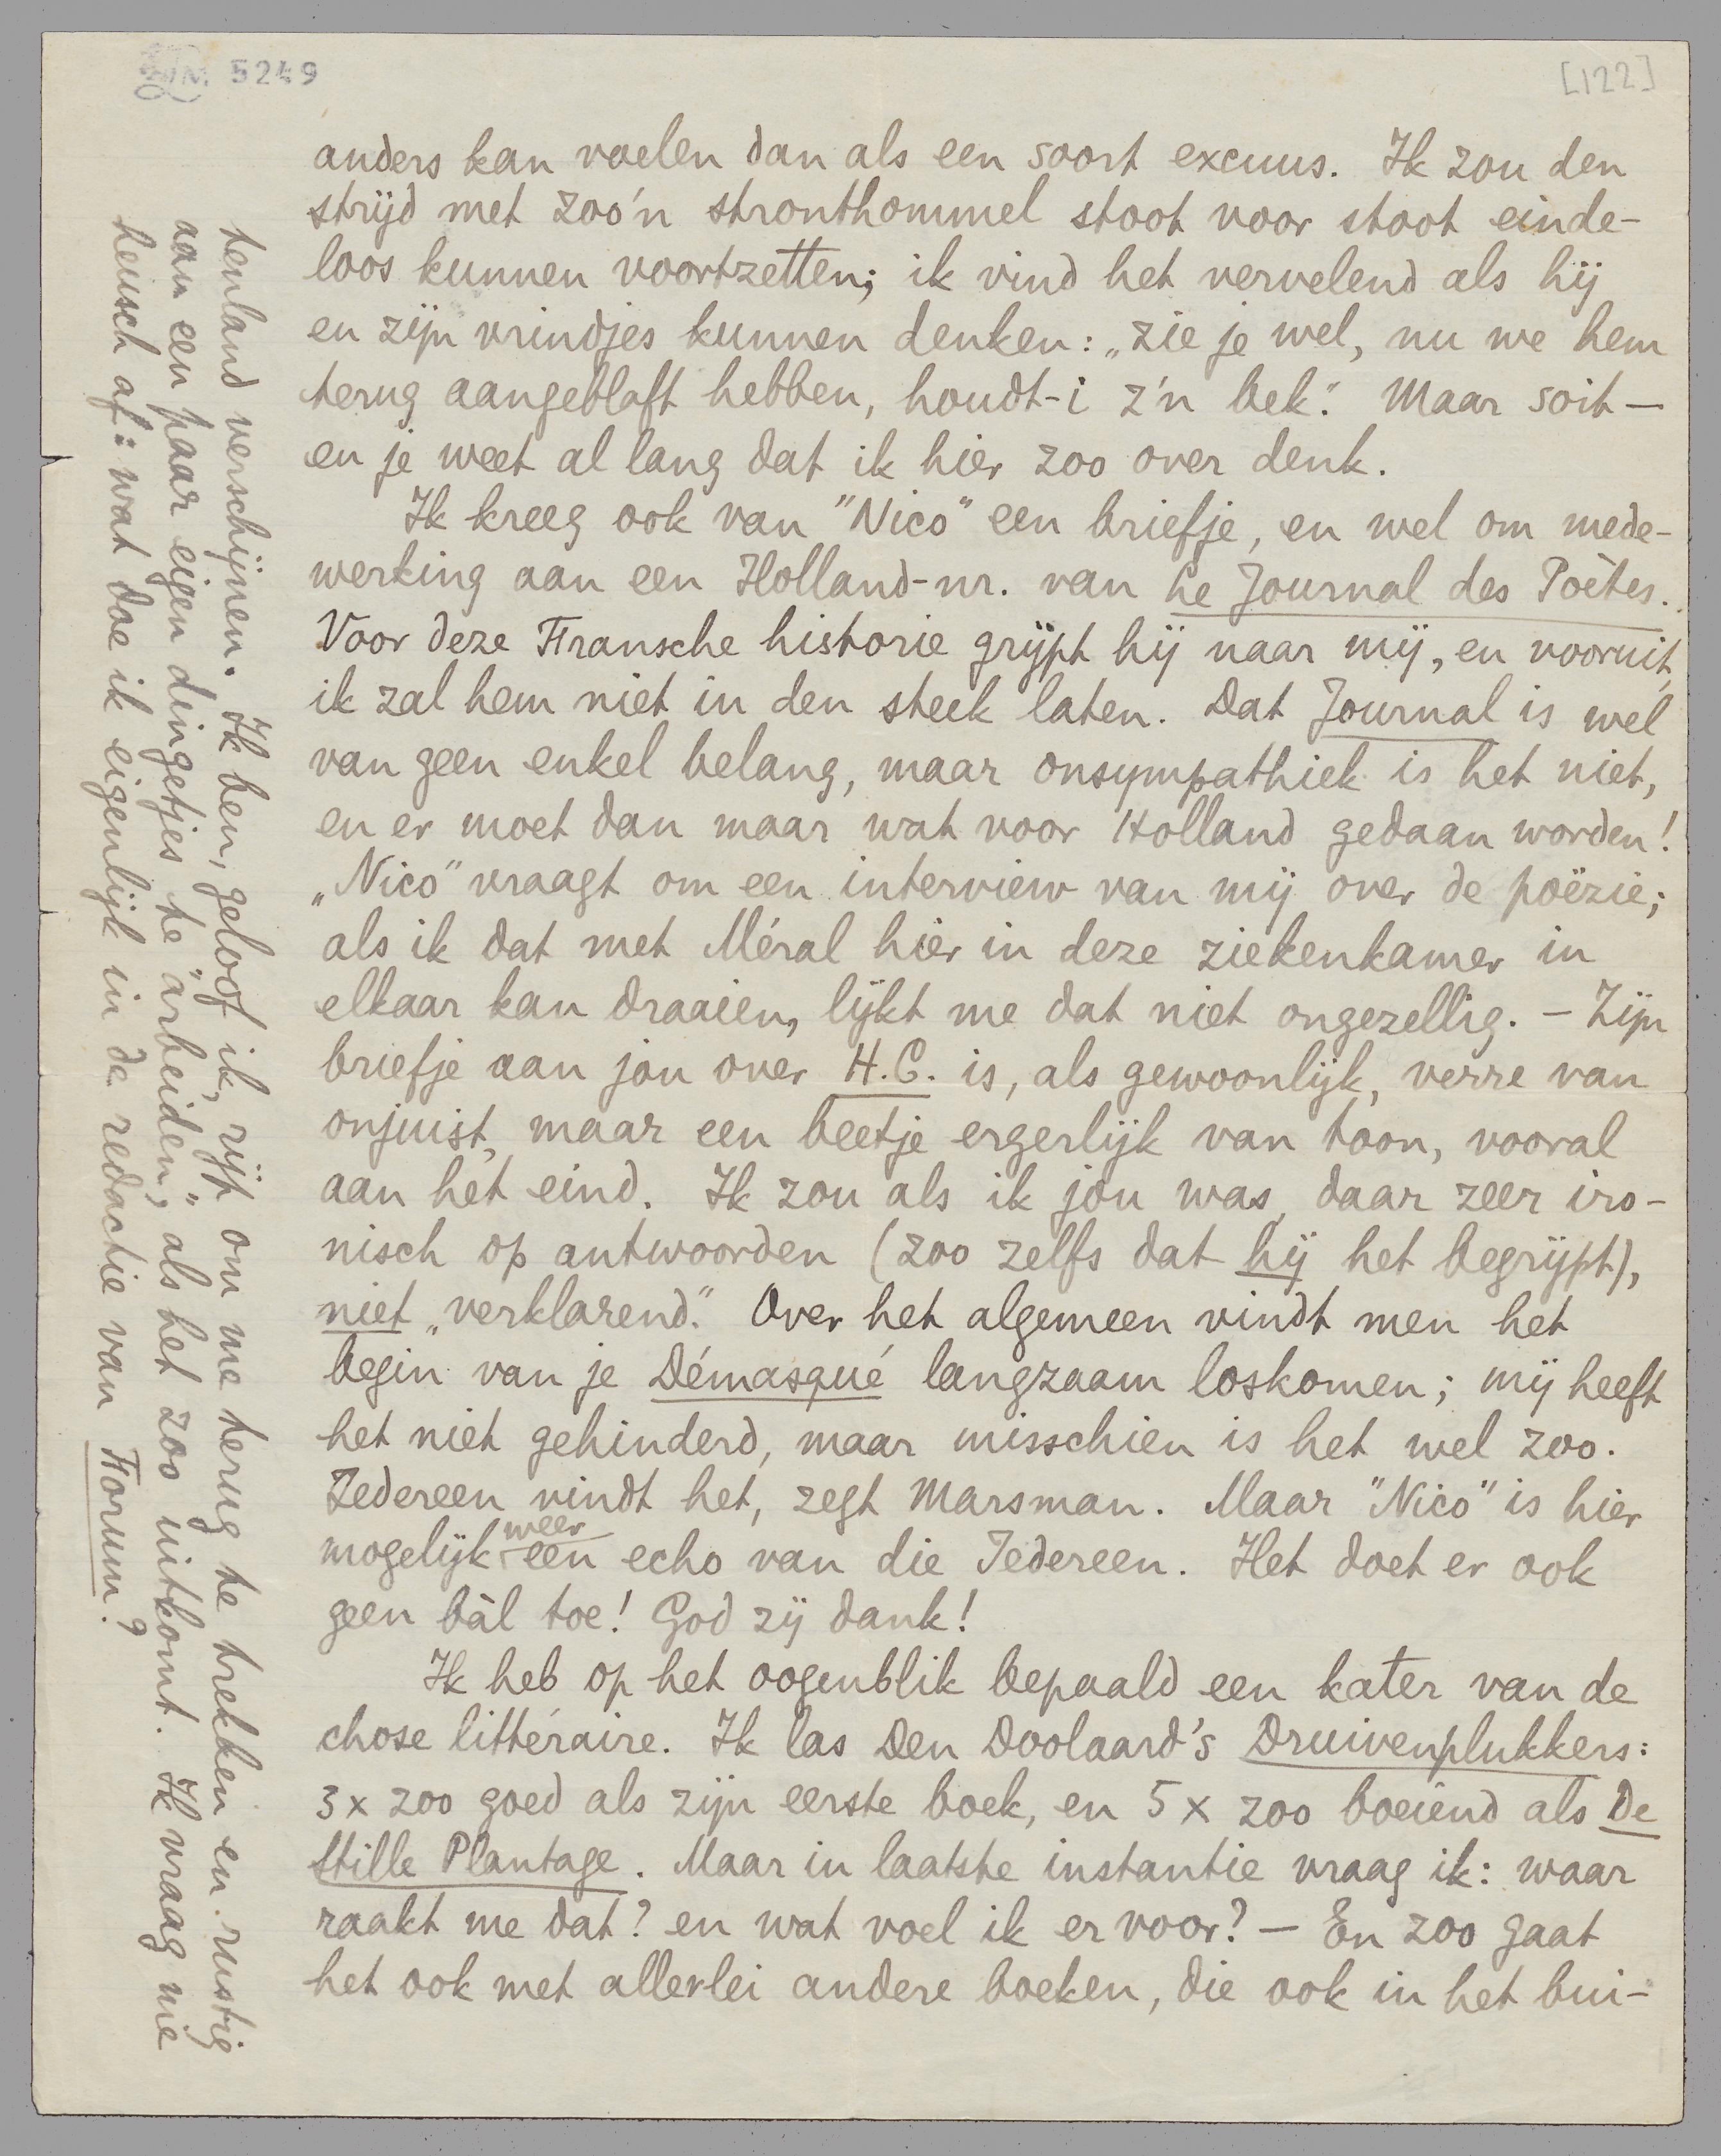 LM 5249
[122]
anders kan voelen dan als een soort excuus. Ik zou den
strijd met zoo'n stronthommel stoot voor stoot einde-
loos kunnen voortzetten; ik vind het vervelend als hij
en zijn vrindjes kunnen denken: „zie je wel, nu we hem
terug aangeblaft hebben, houdt-i z'n bek." Maar soit —
en je weet al lang dat ik hier zoo over denk.
Ik kreeg ook van "Nico" een briefje, en wel om mede-
werking aan een Holland-nr. van Le Journal des Poètes.
Voor deze Fransche historie grijpt hij naar mij, en vooruit,
ik zal hem niet in den steek laten. Dat Journal is wel
van geen enkel belang, maar onsympathiek is het niet,
en er moet dan maar wat voor Holland gedaan worden!
„Nico" vraagt om een interview van mij over de poëzie;
als ik dat met Méral hier in deze ziekenkamer in
elkaar kan draaien, lijkt me dat niet ongezellig. — Zijn
briefje aan jou over H.C. is, als gewoonlijk, verre van
onjuist, maar een beetje ergerlijk van toon, vooral
aan het eind. Ik zou als ik jou was, daar zeer iro-
nisch op antwoorden (zoo zelfs dat hij het begrijpt),
niet „verklarend." Over het algemeen vindt men het
begin van je Démasqué langzaam loskomen; mij heeft
het niet gehinderd, maar misschien is het wel zoo.
Iedereen vindt het, zegt Marsman. Maar "Nico" is hier
mogelijk weer een echo van die Iedereen. Het doet er ook
geen bàl toe! God zij dank!
Ik heb op het oogenblik bepaald een kater van de
chose littéraire. Ik las Den Doolaard's Druivenplukkers:
3 x zoo goed als zijn eerste boek, en 5 x zoo boeiend als De
Stille Plantage. Maar in laatste instantie vraag ik: waar
raakt me dat? en wat voel ik er voor? — En zoo gaat
het ook met allerlei andere boeken, die ook in het bui-
tenland verschijnen. Ik ben, geloof ik, rijp om me terug te trekken en rustig
aan een paar eigen dingetjes te "arbeiden", als het zoo uitkomt. Ik vraag me
heusch af: wat doe ik eigenlijk in de redactie van Forum?